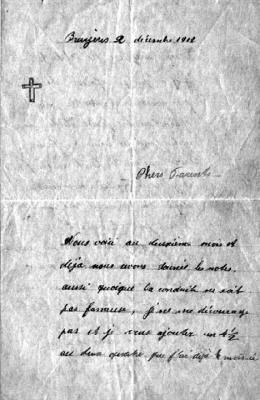 Bruyères 2 décembre 1918
Chers Parents
Nous voici au deuxième mois et
déjà nous avons les notes.
aussi quoique la conduite ne soit
pas fameuse, je ne me décourage
pas et je veux ajouter un 4½
au deux quatre que j'ai déjà